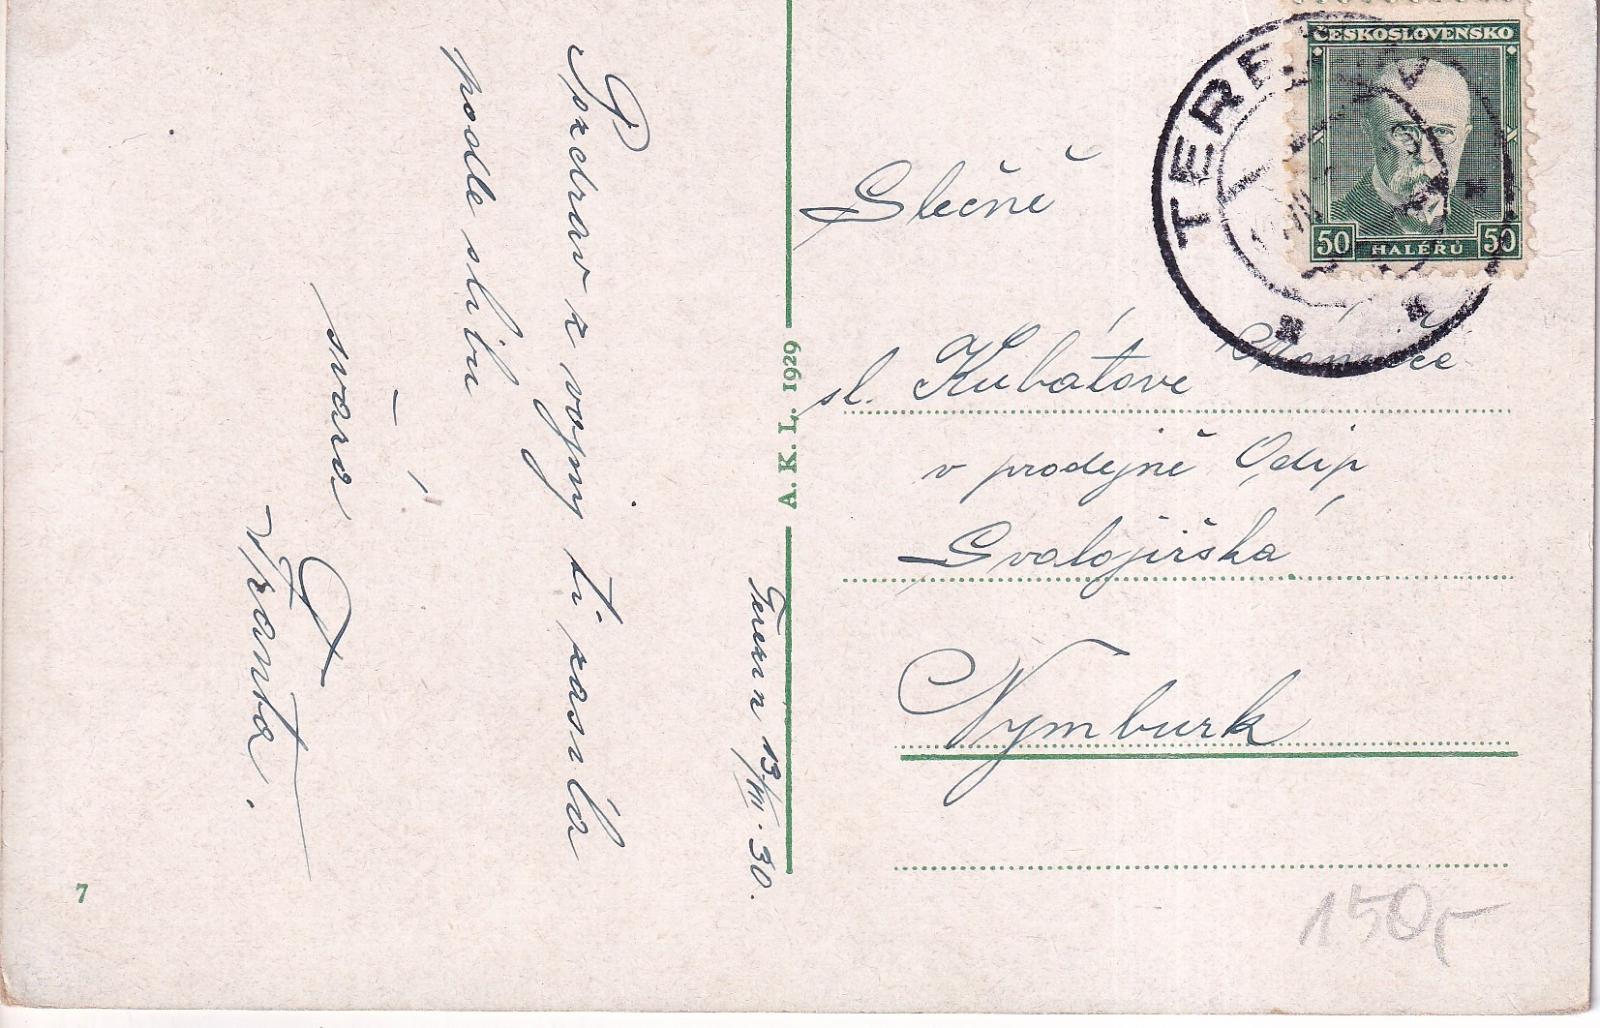 Pozdrav z vojny ti zasíla
podle slibu
svára
Franta.
Terezin 13/VII. 30.
A. K. L. 1929
7
ČESKOSLOVENSKO
50 HALÉŘŮ 50
TEREZÍN
Slečně
sl. Kubátove
v prodejně Odip
Svatojiřská
Nymburk
150,-